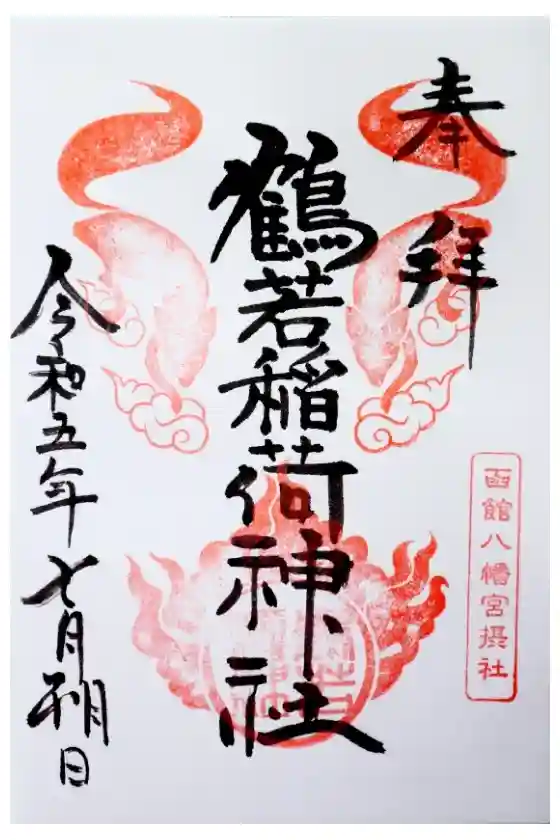 奉拝
函館八幡宮摂社
鶴若稲荷神社
令和五年七月朔日